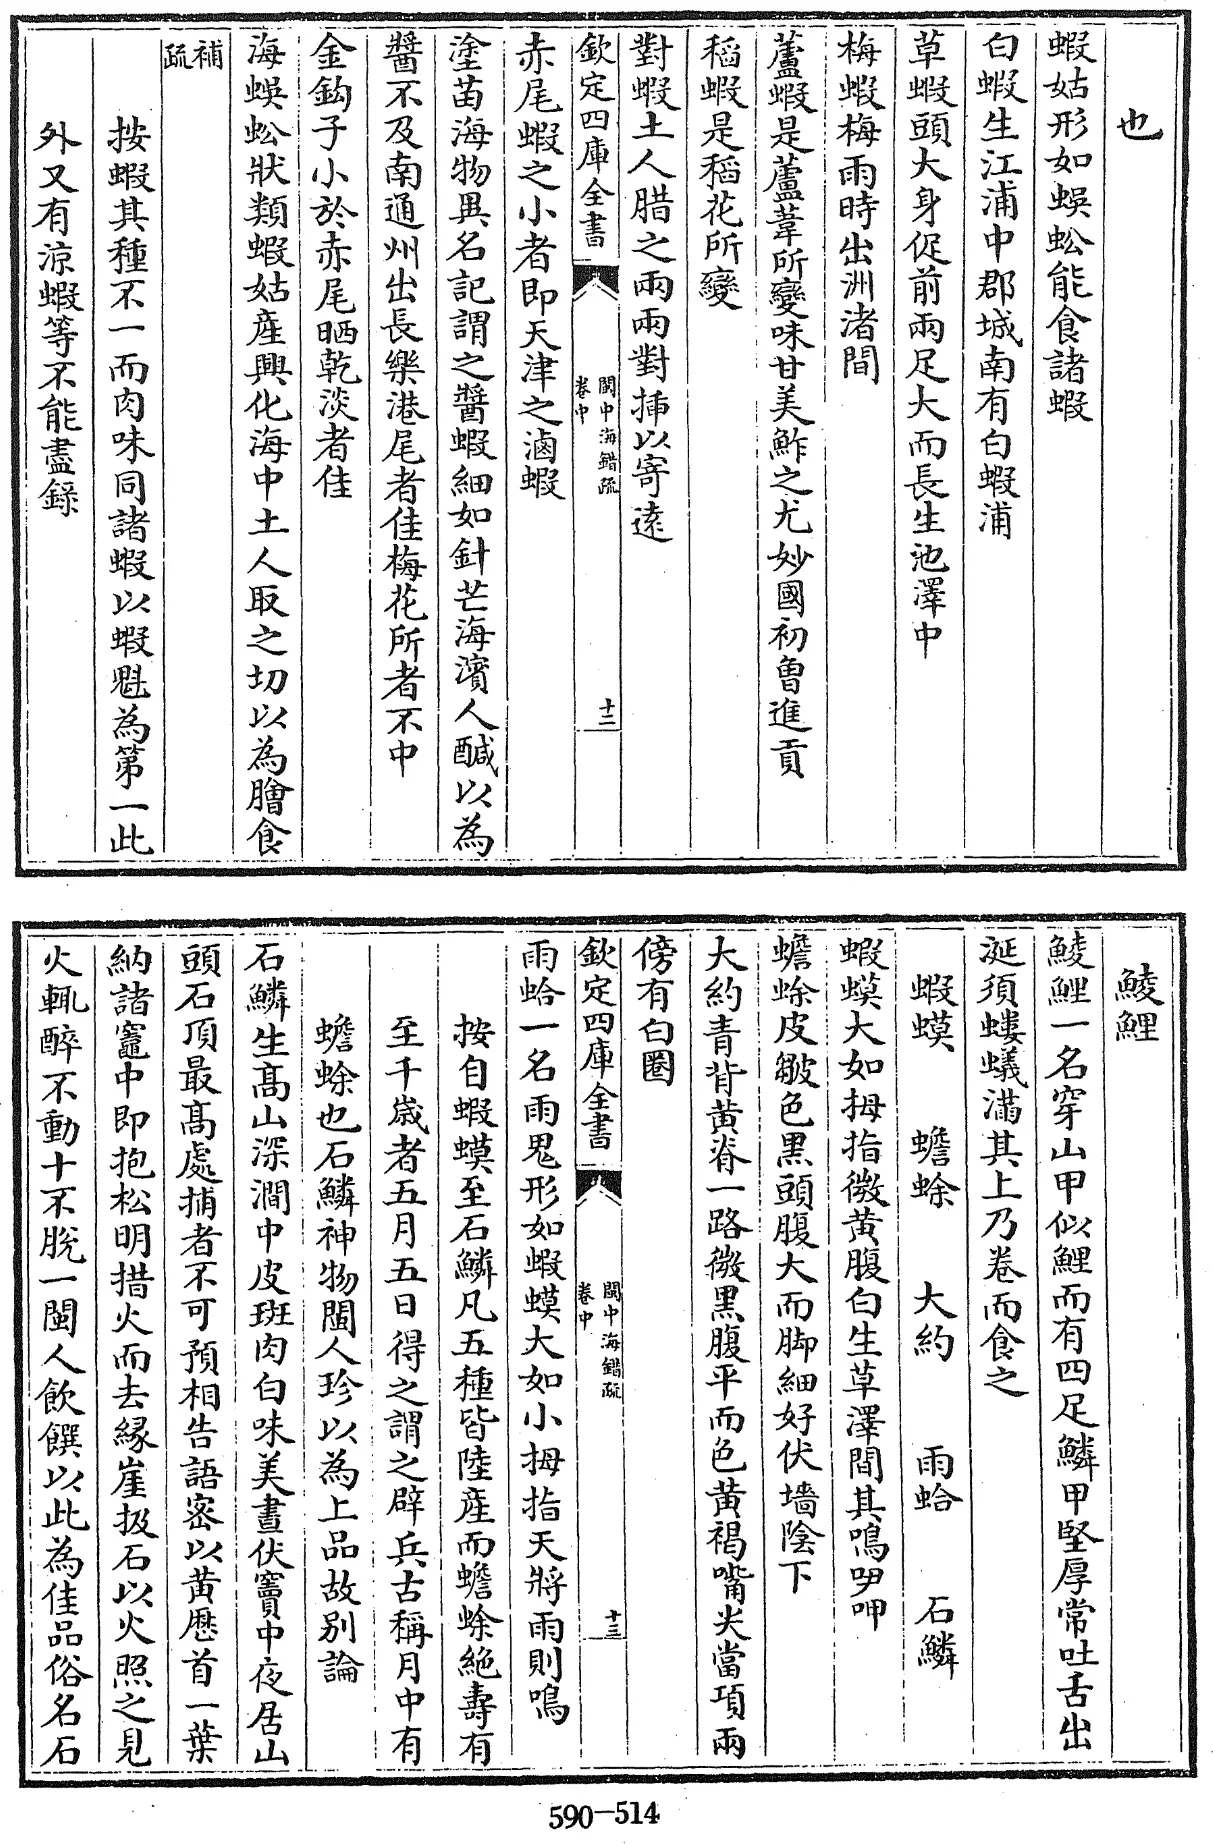 也
蝦姑形如蜈蚣能食諸蝦
白蝦生江浦中郡城南有白蝦浦
草蝦頭大身促前兩足大而長生池澤中
梅蝦梅雨時出洲渚間
蘆蝦是蘆葦所變味甘美鮓之尤妙國初曽進貢
稻蝦是稻花所變
對蝦土人腊之兩兩對揷以寄逺
欽定四庫全書
閩中海錯疏
卷中
十二
赤尾蝦之小者即天津之滷蝦
塗苗海物異名記謂之醬蝦細如針芒海濱人醎以為
醬不及南通州出長樂港尾者佳梅花所者不中
金鈎子小於赤尾晒乾淡者佳
海蜈蚣狀類蝦姑產興化海中土人取之切以為膾食
補
疏
按蝦其種不一而肉味同諸蝦以蝦魁為第一此
外又有涼蝦等不能盡錄
鯪鯉
鯪鯉一名穿山甲似鯉而有四足鱗甲堅厚常吐舌出
涎須螻蟻滿其上乃卷而食之
蝦蟆　蟾蜍　大約　雨蛤　石鱗
蝦蟆大如拇指微黃腹白生草澤間其鳴呷呷
蟾蜍皮皺色黒頭腹大而脚細好伏墻隂下
大約青背黃脊一路微黒腹平而色黃褐嘴尖當項兩
傍有白圏
欽定四庫全書
閩中海錯疏
卷中
十三
雨蛤一名雨鬼形如蝦蟆大如小拇指天將雨則鳴
按自蝦蟆至石鱗凡五種皆陸產而蟾蜍絶壽有
至千歲者五月五日得之謂之辟兵古稱月中有
蟾蜍也石鱗神物閩人珍以為上品故別論
石鱗生髙山深澗中皮斑肉白味美晝伏竇中夜居山
頭石頂最髙處捕者不可預相告語密以黃厯首一葉
納諸竈中即抱松明措火而去緣崖扱石以火照之見
火輒醉不動十不脫一閩人飲饌以此為佳品俗名石
590-514